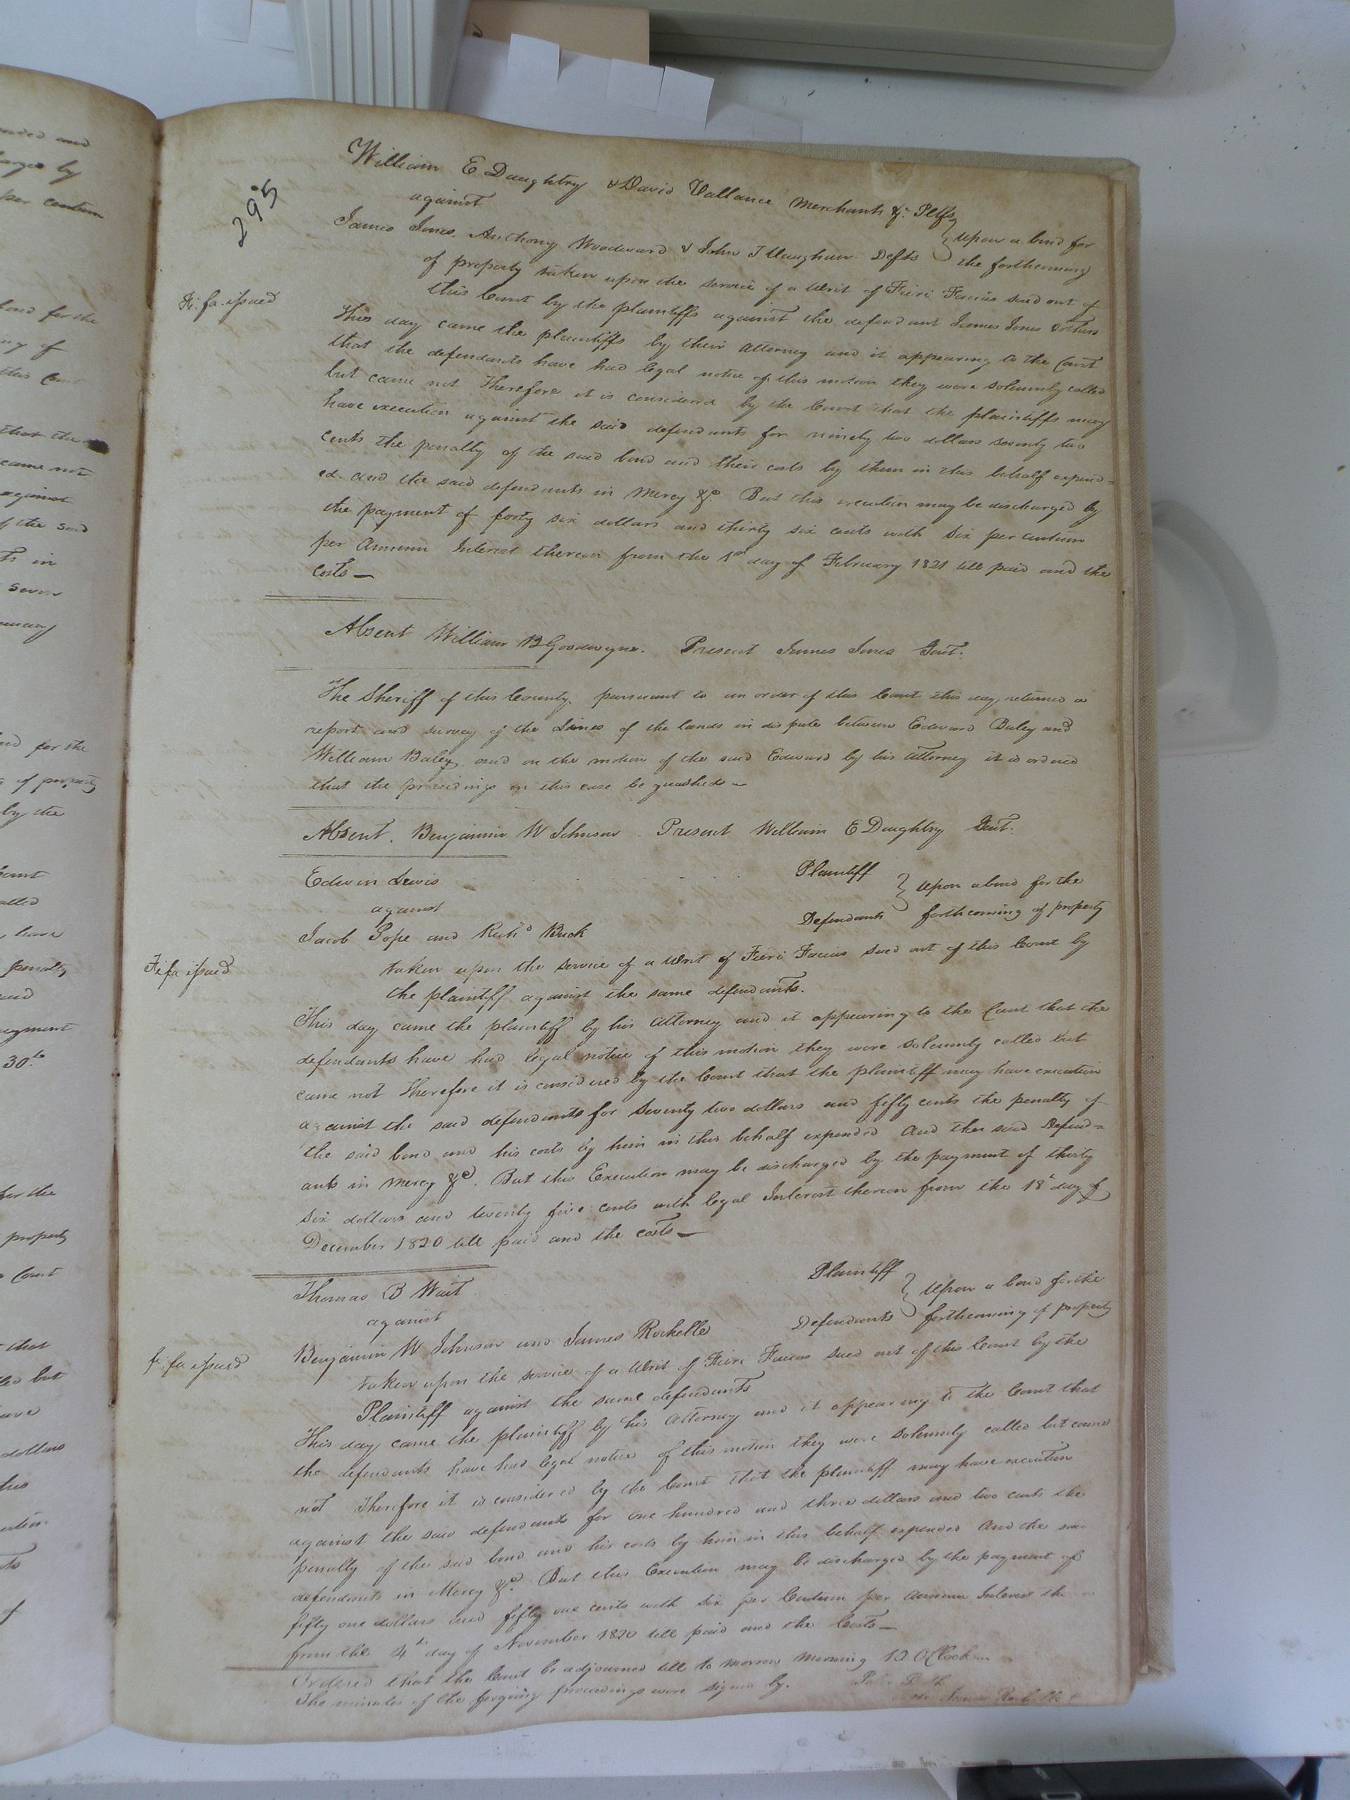 295
William E Daughtry & David Vallance Merchants &c. Pltfs
against
upon a bond for
James Jones, Anthony Woodward & John T Vaughan Defts
the forthcoming
of property taken upon the service of a Writ of Fieri Facias sued out of
this Court by the plaintiffs against the defendant James Jones
Fi. fa. issued
This day came the plaintiffs by their Attorney and it appearing to the Court
that the defendants have had legal notice of this motion they were solemnly called
but came not Therefore it is considered by the Court that the plaintiffs may
have execution against the said defendants for ninety two dollars seventy two
cents the penalty of the said bond and their costs by them in this behalf expend=
ed. and the said defendants in Mercy &c. But this execution may be discharged by
the payment of forty six dollars and thirty six cents with six per centum
per Annum Interest thereon from the 1st day of February 1821 till paid and the
Costs—
Absent William B Goodwyn. Present James Jones Gent.
The Sheriff of this County, pursuant to an order of this Court this day returned a
report and survey of the Lines of the lands in dispute between Edward Baley and
William Baley, and on the motion of the said Edward by his Attorney it is ordered
that the proceedings in this case be quashed—
Absent. Benjamin W Johnson. Present William E Daughtry Gent.
Edwin Lewis
Plaintiff
against
upon a bond for the
Jacob Pope and Richd Buck
Defendants
forthcoming of property
Fi fa issued
taken upon the service of a Writ of Fieri Facias sued out of this Court by
the plaintiff against the same defendants.
This day came the plaintiff by his Attorney and it appearing to the Court that the
defendants have had legal notice of this motion they were solemnly called but
came not Therefore it is considered by the Court that the plaintiff may have execution
against the said defendants for Seventy two dollars and fifty cents the penalty of
the said bond and his costs by him in this behalf expended And the said Defend=
ants in Mercy &c. But this Execution may be discharged by the payment of thirty
six dollars and twenty five cents with legal Interest thereon from the 18th day of
December 1820 till paid and the costs—
Thomas B Wait
Plaintiff
against
Upon a bond for the
Benjamin W Johnson and James Rochelle
Defendants
forthcoming of property
fi fa issued
taken upon the service of a Writ of Fieri Facias sued out of this Court by the
Plaintiff against the same defendants
This day came the plaintiff by his Attorney and it appearing to the Court that
the defendants have had legal notice of this motion they were solemnly called but came
not Therefore it is considered by the Court that the plaintiff may have execution
against the said defendants for one hundred and three dollars and two cents the
penalty of the said bond and his costs by him in this behalf expended And the
defendants in Mercy &c. But this Execution may be discharged by the payment of
fifty one dollars and fifty one cents with six per Centum per Annum Interest
from the 4th day of November 1820 till paid and the Costs—
Ordered that the Court be adjourned till to morrow morning 10 OClock
The minutes of the forgoing proceedings were signed by.